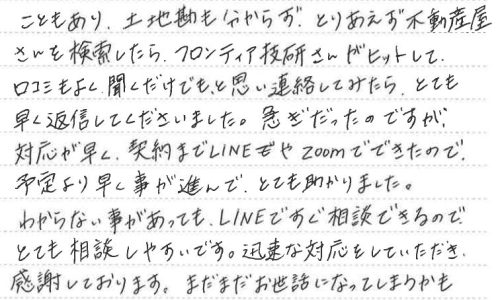 こともあり、土地勘も分からず、とりあえず不動産屋
さんを検索したら、フロンティア技研さんがヒットして、
口コミもよく、聞くだけでも、と思い連絡してみたら、とても
早く返信してくださいました。急ぎだったのですが、
対応が早く、契約までLINEやzoomでできたので、
予定より早く事が進んで、とても助かりました。
わからない事があっても、LINEですぐ相談できるので
とても相談しやすいです。迅速な対応をしていただき、
感謝しております。まだまだお世話になってしまうかも